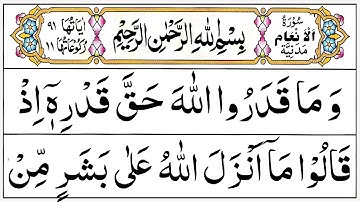 سُوْرَةُ الْاَنْعَام مَدَنِيَّة
بِسْمِ اللّٰهِ الرَّحْمٰنِ الرَّحِيْمِ
اٰيَاتُهَا ٩١ رُكُوْعَاتُهَا ١١
وَمَا قَدَرُوا اللّٰهَ حَقَّ قَدْرِهٖٓ اِذْ
قَالُوْا مَآ اَنْزَلَ اللّٰهُ عَلٰى بَشَرٍ مِّنْ